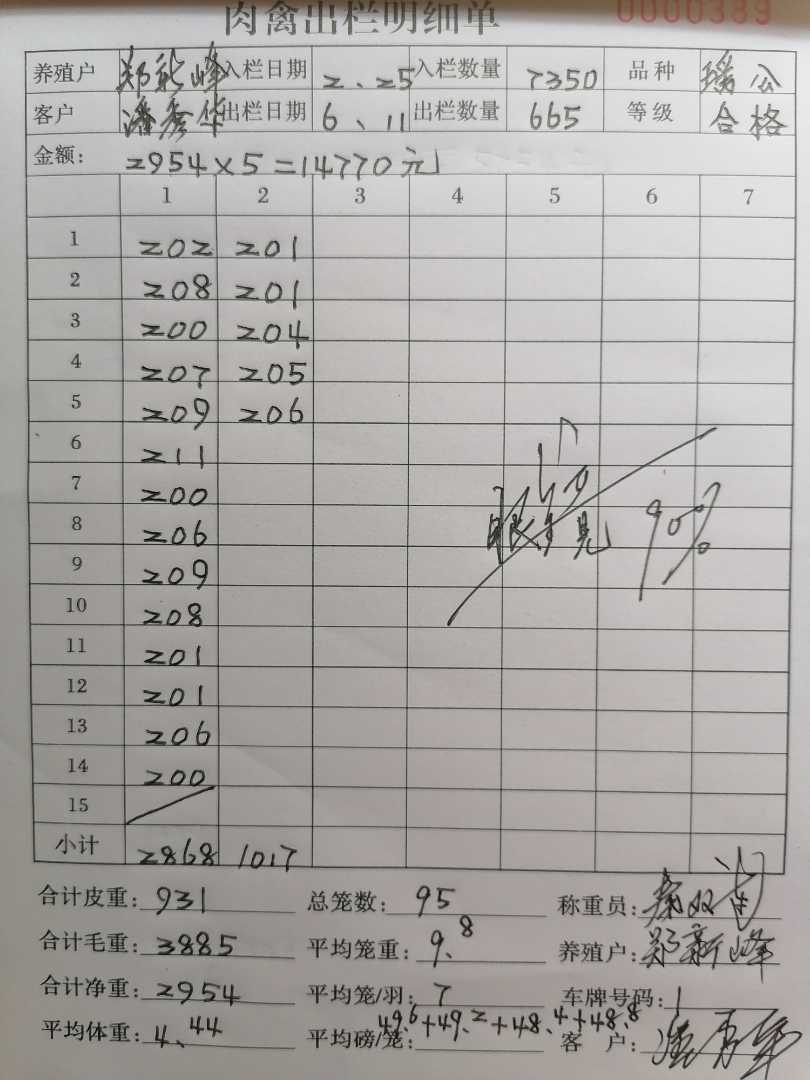 肉禽出栏明细单 0000389
养殖户 郑新峰 入栏日期 2、25 入栏数量 7350 品种 瑞公
客户 潘秀华 出栏日期 6、11 出栏数量 665 等级 合格
金额: 2954×5=14770元
1 2 3 4 5 6 7
1 202 201
2 208 201
3 200 204
4 207 205
5 209 206
6 211
7 200
8 206
9 209
10 208
11 201
12 201
13 206
14 200
15
90%
小计 2868 1017
合计皮重: 931 总笼数: 95 称重员:
合计毛重: 3885 平均笼重: 9.8 养殖户: 郑新峰
合计净重: 2954 平均笼/羽: 7 车牌号码: 1
平均体重: 4、44 平均磅/笼: 49.6+49.2+48.4+48.8 客 户: